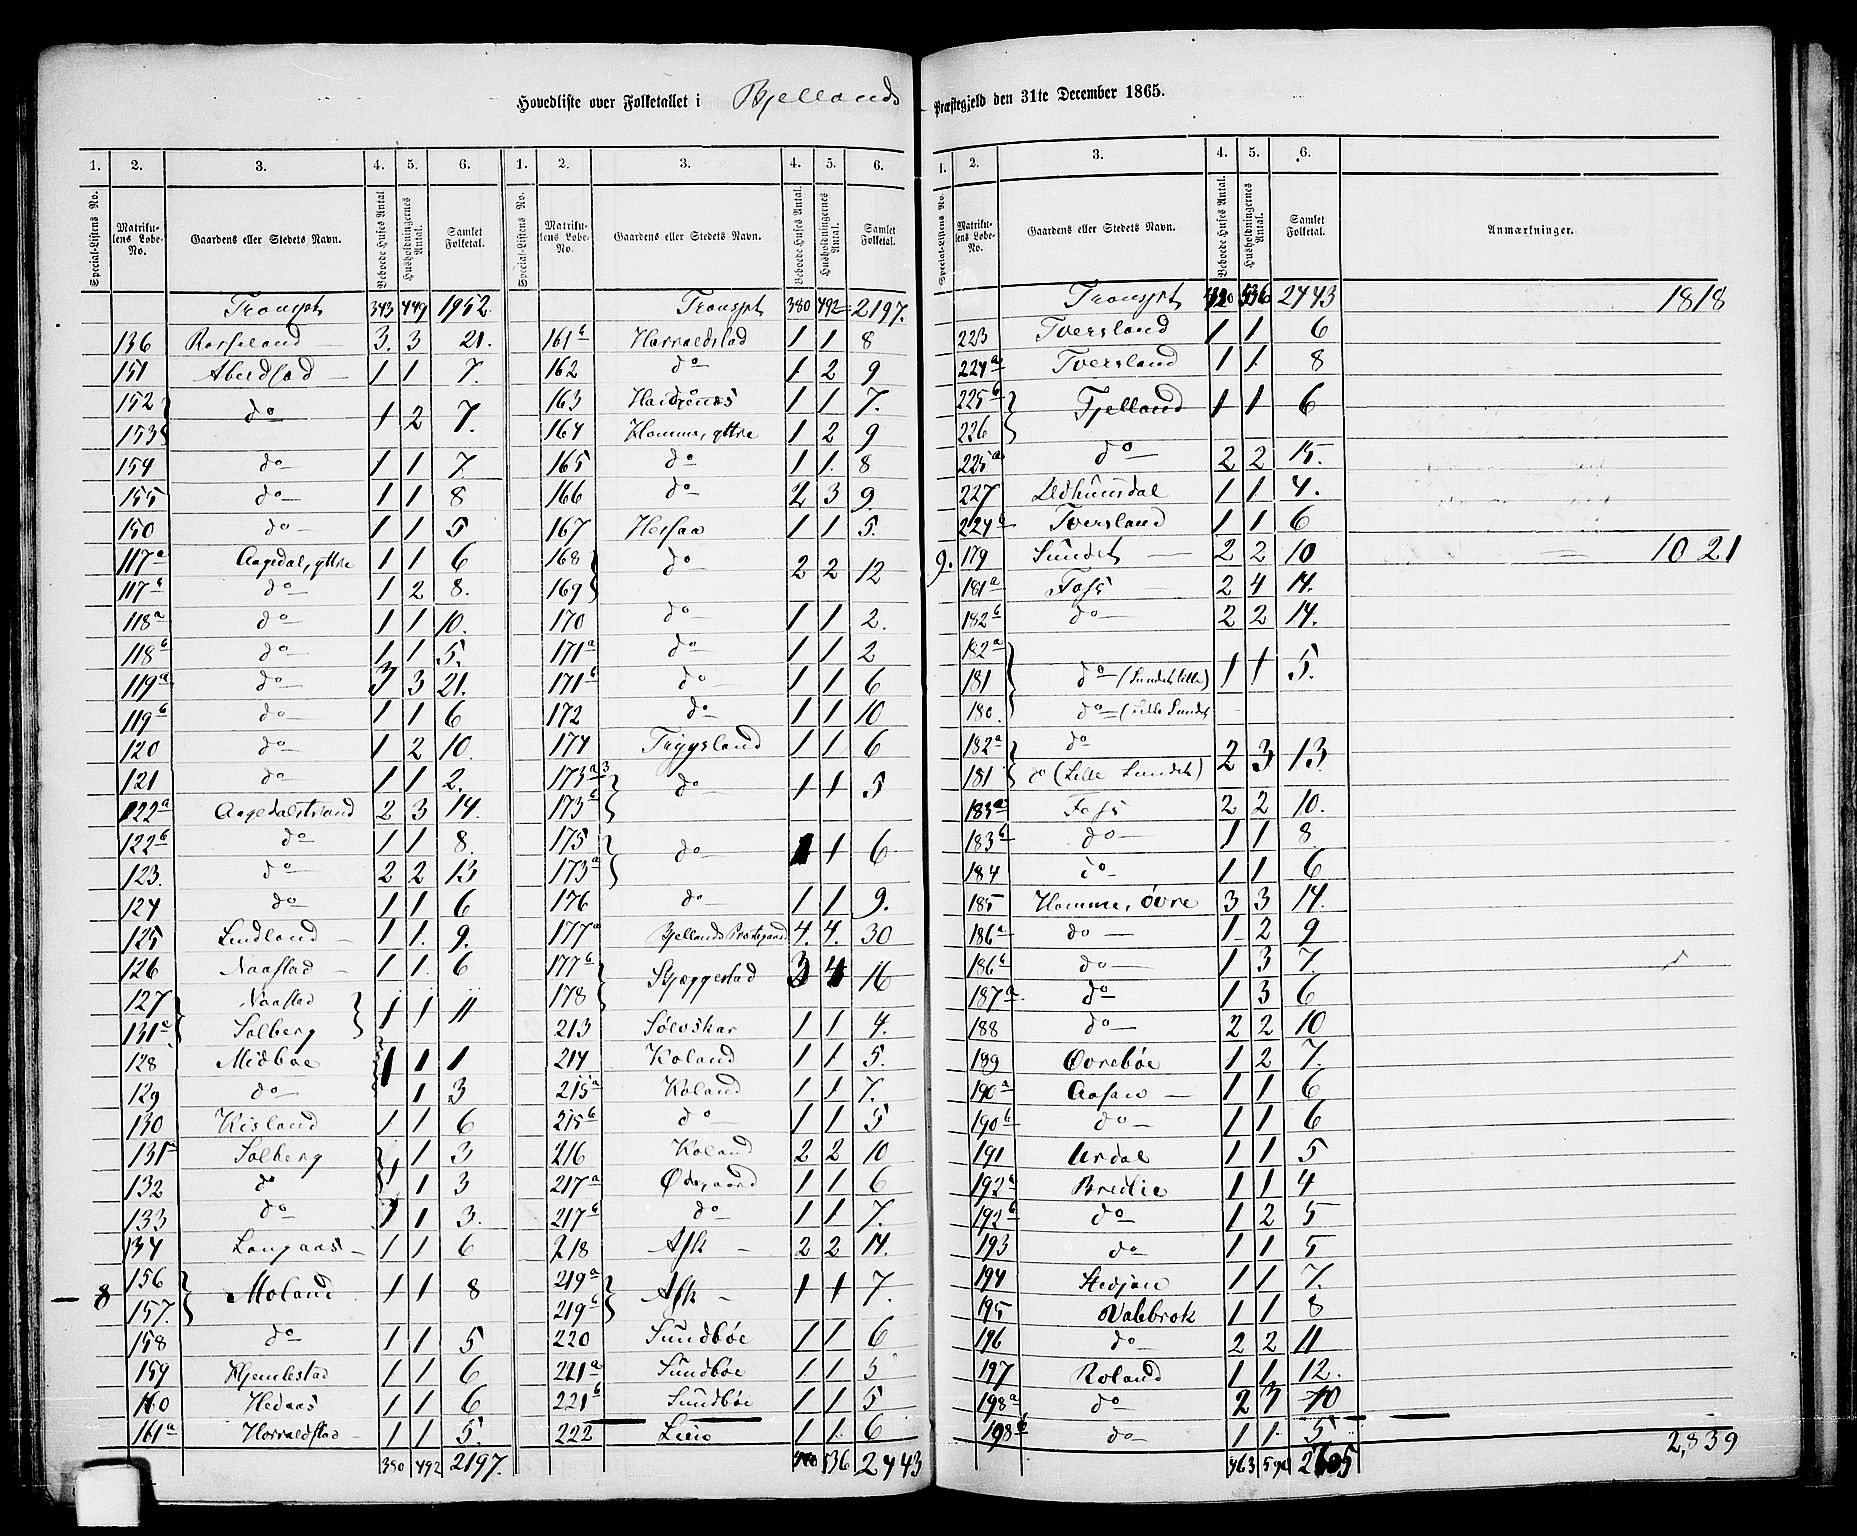 Hovedliste over Folketallet i Bjellands Præstegjeld den 31te December 1865.
1. 2. 3. 4. 5. 6.
Special-Listens No. Matrikulens Løbe-No. Gaardens eller Stedets Navn. Beboede Huses Antal Husholdningernes Antal. Samlet Folketal.
Transpt 343 449 1952
136 Rosseland 3. 3 21.
151 Aberdsad 1 1 7.
152 153 do 1 2 7.
154 do 1 1 7.
155 do 1 1 8
150 do 1 1 5
117a Aagedal, yttre 1 1 6
117b do 1 2 8.
118a do 1 1 10.
118b do 1 1 5.
119a do 3 3 21.
119b do 1 1 6
120 do 1 2 10.
121 do 1 1 2.
122a Aagedalstrand 2 3 14.
122b do 1 1 8.
123. do 2 2 13
124 do 1 1 6
125 Lindland 1 1. 9.
126 Naastad 1 1 6
127 Naastad
131a Solberg 1 1 11
128 Midbøe 1 1 1
129 do 1 3
130 Kisland 1 1 6
131b Solberg 1 1 3
132 do 1 3
133 do 1 1 3.
134 Langaas 1 1 6
8 156 157. Moland 1 1 8
158 do 1 1 5
159 Hjemlestad 1 1 6
160 Hedaas 1 1 6
161a Horraldstad 1 1 5.
380 492 2197.
1. 2. 3. 4. 5. 6.
Special-Listens No. Matrikulens Løbe-No. Gaardens eller Stedets Navn. Beboede Huses Antal. Husholdningernes Antal. Samlet Folketal.
Transpt 380 492 2197.
161b Harraldstad 1 1 8
162 do 1 2 9
163 1 1 7.
164 Homme, yttre 1 2 9
165 do 1 1. 8
166 do 2 3 9.
167 Hessaa 1 1 5.
168 169 do 2 2 12
170 do 1 1 2.
171a do 1 1 2
171b do 1 1 6
172 do 1 1 10
174 Tryggsland 1 1 6
173a3 173b do 1 1 5
175 173a do 1 1 6
176 do 1 1 9.
177a Bjellands Præstegaard 4. 4. 30
177b 178 Skjeggestad 3 4 16
213 Sølvskar 1 1 4.
214 Koland 1 1 5.
215a Koland 1 1 7.
215b do 1 1 5
216 Koland 2 2 10
217a Ødegaard 1 1 6
217b do 1 1 7.
218 Ask 2 2 14.
219a 219b Ask 1 1 7.
220 Sundbøe 1 1 6
221a Sundbøe 1 1 5
221b Sundbøe 1 1 5
222 Lien 1 1. 6
420 536 2443
1. 2. 3. 4. 5. 6.
Special-Listens No. Matrikulens Løbe-No. Gaardens eller Stedets Navn. Beboede Huses Antal. Husholdningernes Antal. Samlet Folketal. Anmærkninger.
Transpt 420 536 2443 1818
223 Tversland 1 1 6
224a Tversland 1 1. 8
225b 226 Fjelland 1 1 6
225a do 2 2 15.
227 1 1 4.
224b Tversland 1 1 6
9. 179 Sundet 2 2 10 1021
181a Foss 2 4 14.
182b do 2 2 14.
182a
181 do (Sundet lille) 1 1 5.
180. do (lille Sundet
182a do
181 do (Lille Sundet) 2 3 13.
183a Foss 2 2 10.
183b do 1 1 8.
184 do 1 1 6
185 Homme, øvre 3 3 14.
186a do 1 2 9
186b do 1 3 7.
187a. do 1 3 6
188 do 2 2 10
189 Øvrebøe 1 2 7.
190a Aasen 1 1 6
190b do 1 1 6
191 Urdal 1 1 5
192a Bredlie 1 1 4
192b do 1 2 5
193 do 1 1 5
194 Stedjan 1 1 7.
195 Valebrok 1 1 8
196 do 2 2 11
197 Roland 1 1 12.
198a do 2 3 10
198b do 1 1. 5
2,839
463 2605